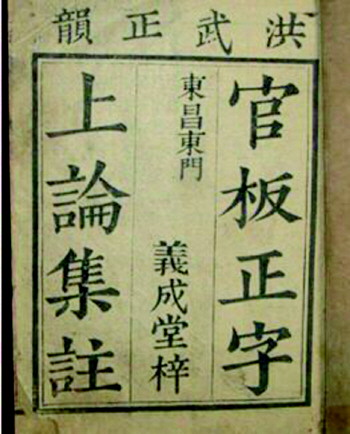 洪武正韻
官板正字
東昌東門
義成堂梓
上論集註